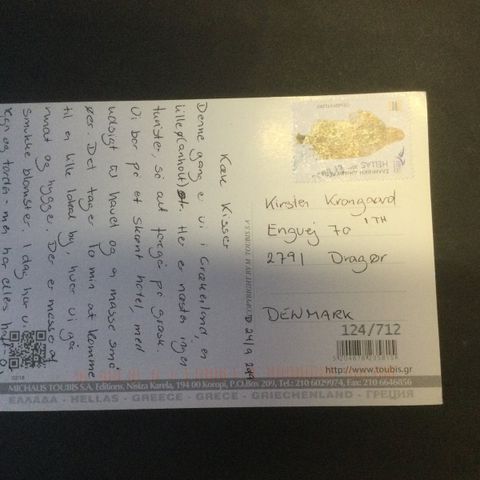 Kære Kisser
Denne gang er vi i Grækenland, en
lille ø (anholt) str. Her er næsten ingen
turister, så alt foregår på græsk
Vi bor på et skønt hotel, med
udsigt til havet og en masse små
øer. Det tager 10 min at komme
til en lille lokal by, hvor vi går
rundt og hygger. Der er masser af
smukke blomster. I dag har vi
regn og torden - men har ellers haft
D 24/9
HELLAS
Kirsten Krongaard
Engvej 70 1 TH
2791 Dragør
DENMARK
124/712
http://www.toubis.gr
MICHALIS TOUBIS S.A. Editions, Nisiza Karela, 194 00 Koropi, P.O.Box 209, Tel.: 210 6029974, Fax: 210 6646856
ΕΛΛΑΔΑ - HELLAS - GREECE - GRECE - GRIECHENLAND - ГРЕЦИЯ